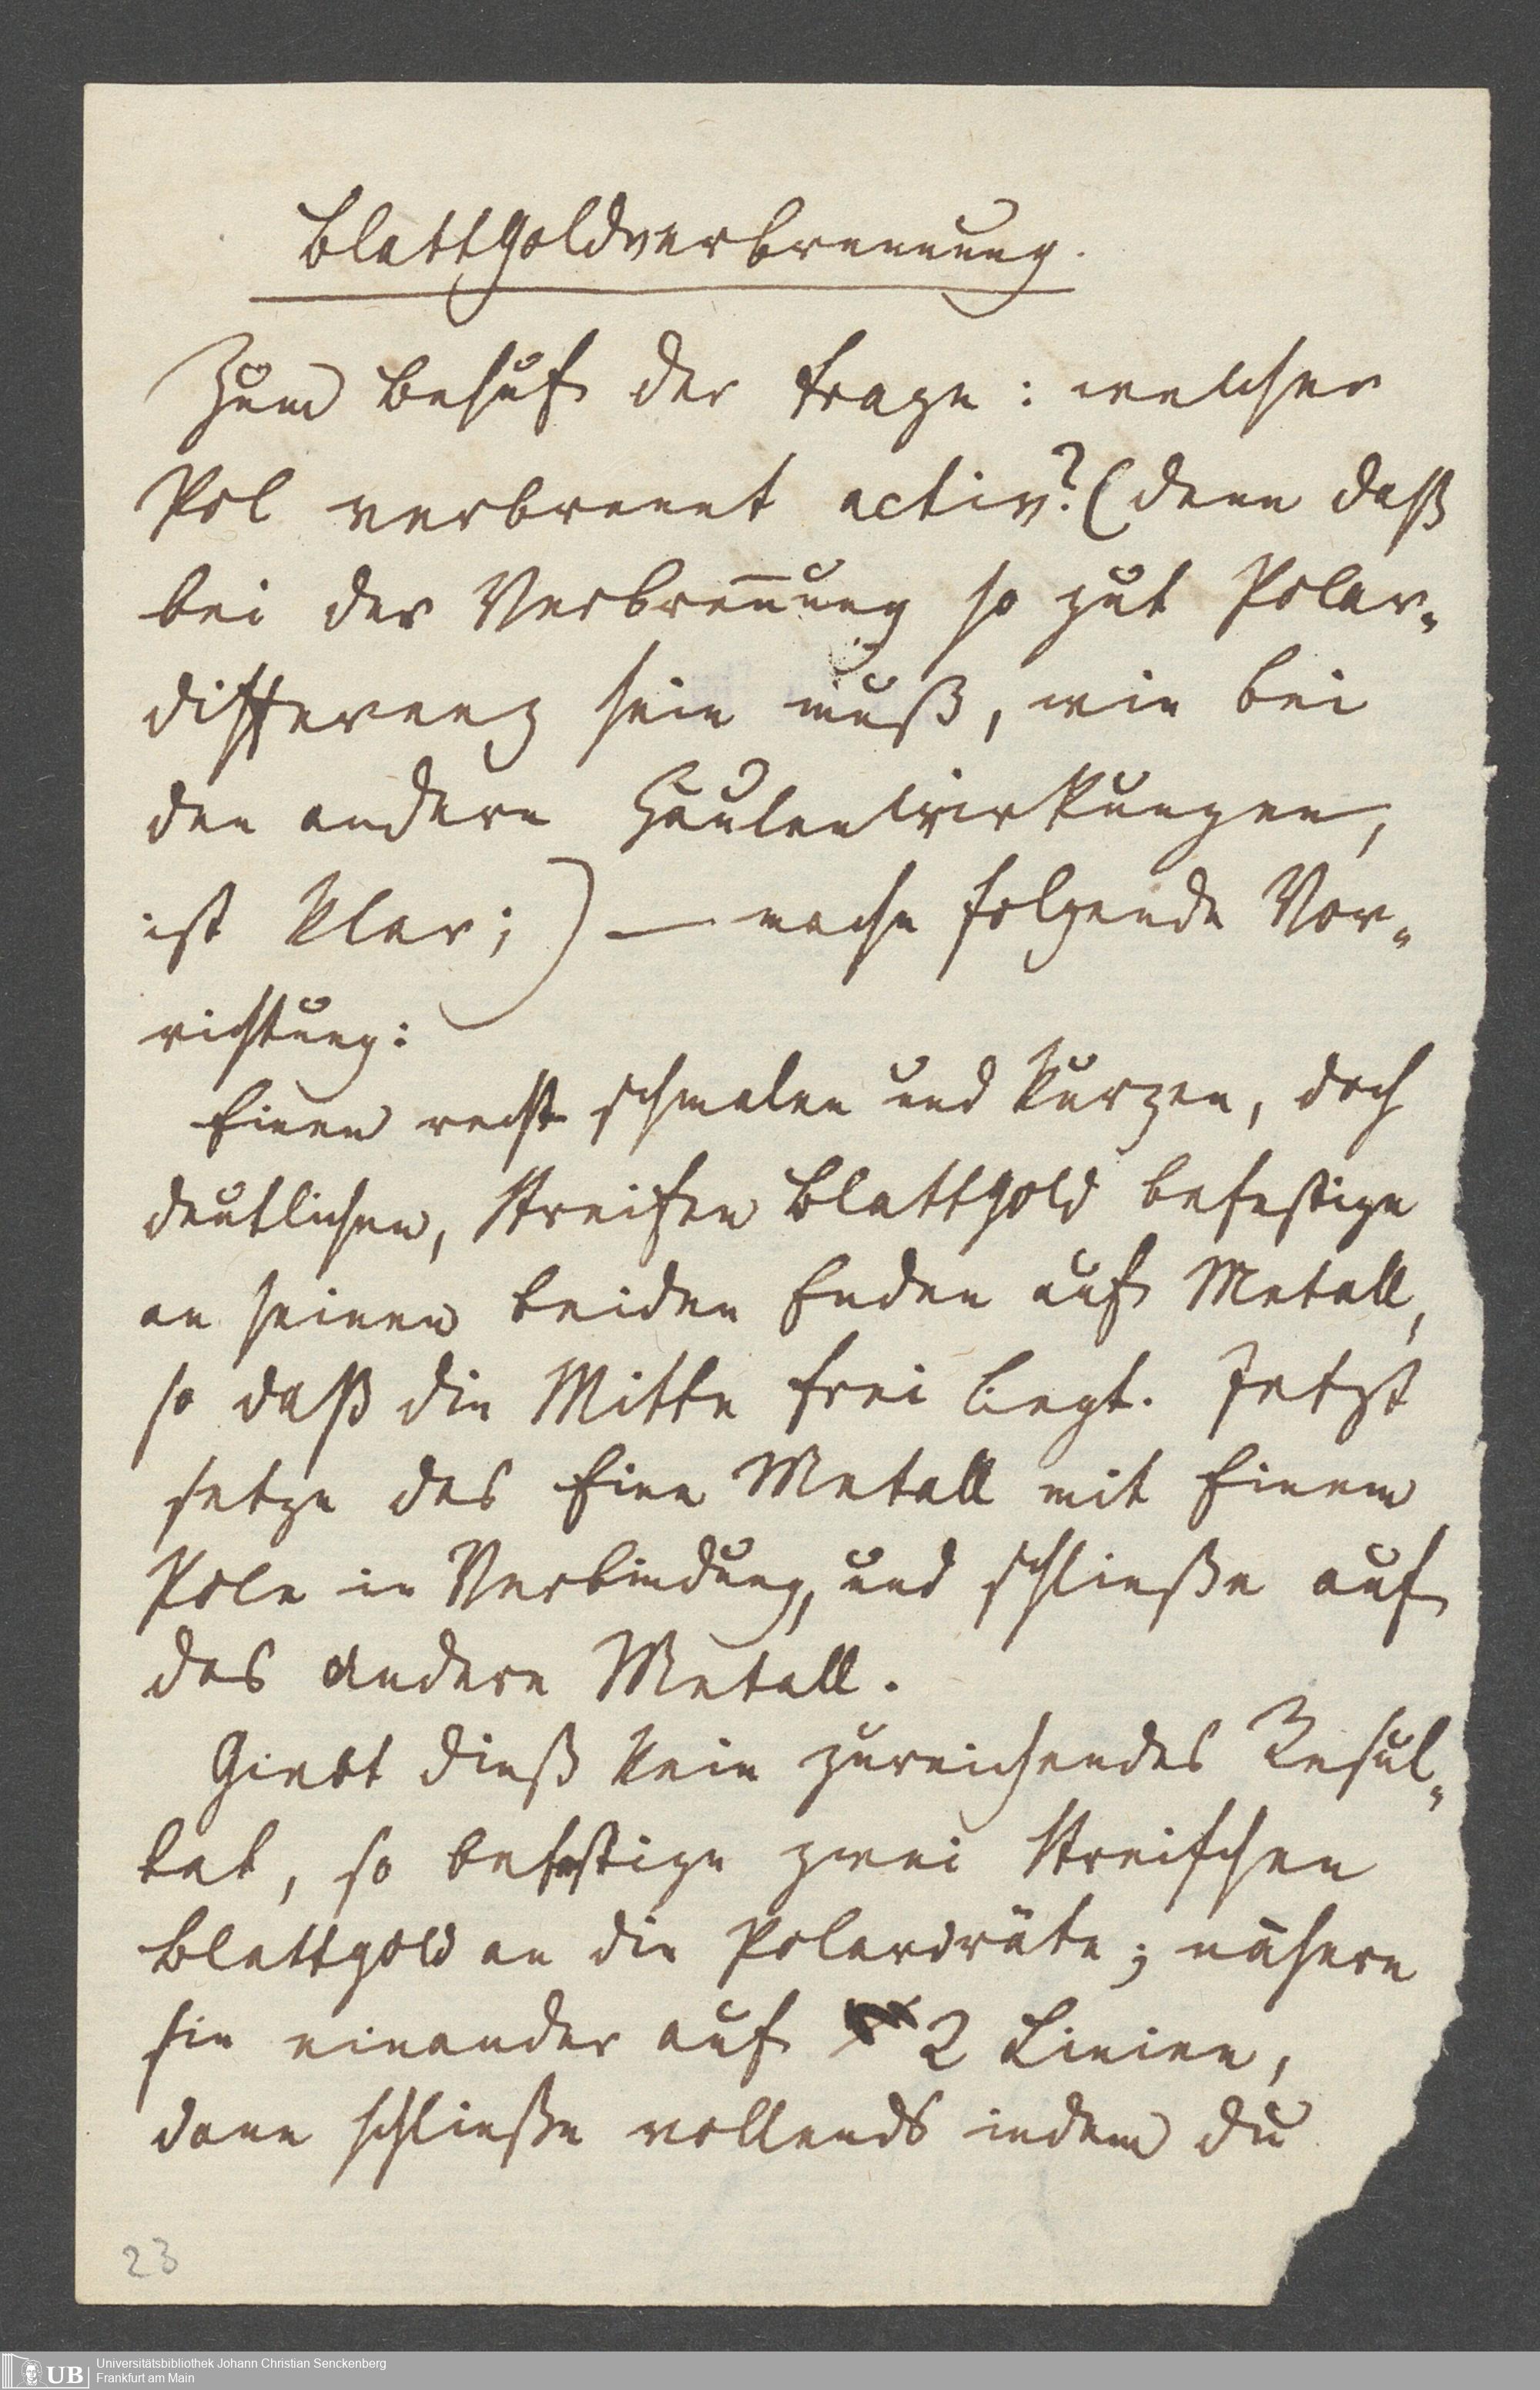 BlattGoldverbrennung.
Zum Behuf der Frage: welcher
Pol verbrennt activ? (denn daß
bei der Verbreñung so gut Polar-
differenz sein muß, wie bei
den andern Säulenwirkungen,
ist klar;) — mache folgende Vor-
richtung:
Einen recht schmalen und kurzen, doch
deutlichen, Streifen BlattGold befestige
an seinen beiden Enden auf Metall,
so daß die Mitte frei liegt. Jetzt
setze das Eine Metall mit Einem
Pole in Verbindung, und schließe auf
das andere Metall.
Giebt dieß kein zureichendes Resul-
tat, so befestige zwei Streifchen
Blattgold an die Polardräte; nähere
sie einander auf 2 Linien,
dann schließe vollends indem du
23
UB
Universitätsbibliothek Johann Christian Senckenberg
Frankfurt am Main